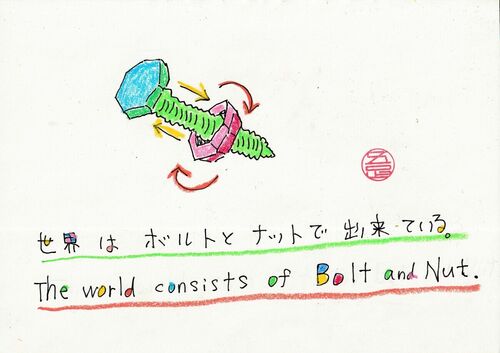 世界はボルトとナットで出来ている。
The world consists of Bolt and Nut.